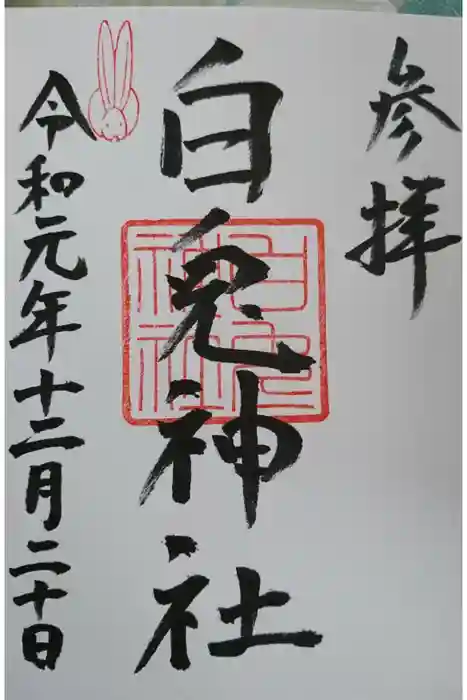 参拝
白兎神社
白兎神社
令和元年十二月二十日